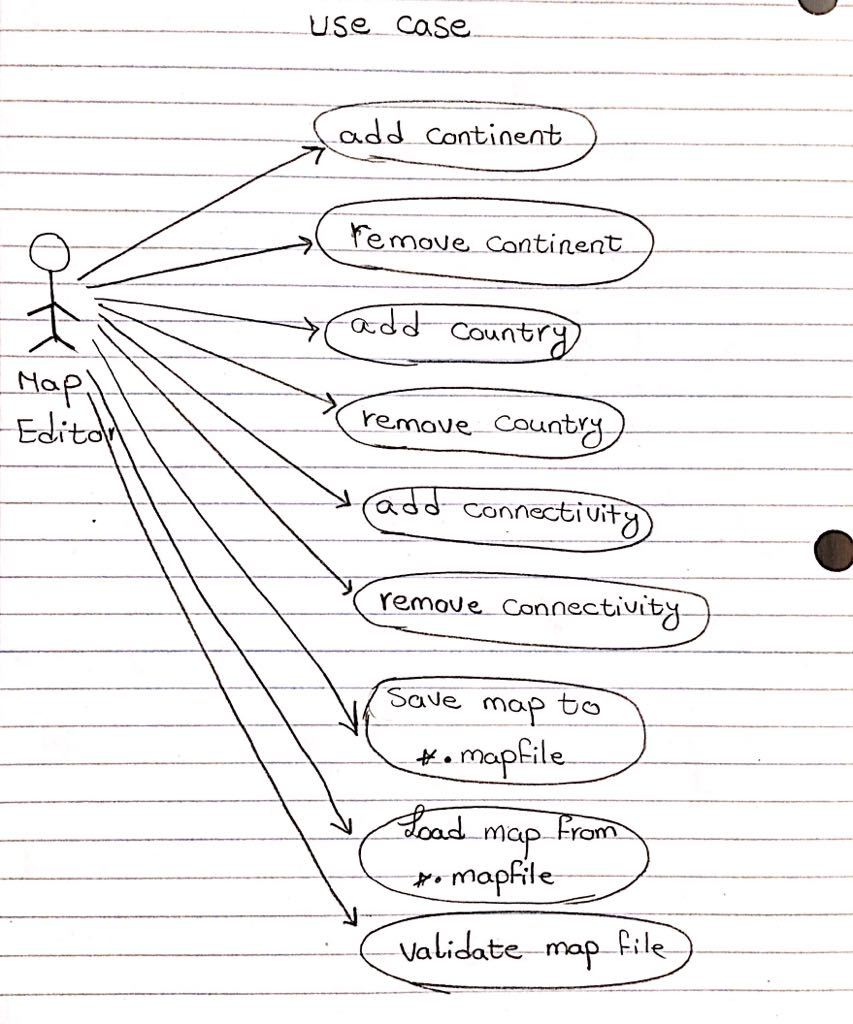 use case
add continent
remove continent
add country
remove country
Map
Editor
add connectivity
remove connectivity
Save map to
*.mapfile
Load map from
*.mapfile
validate map file